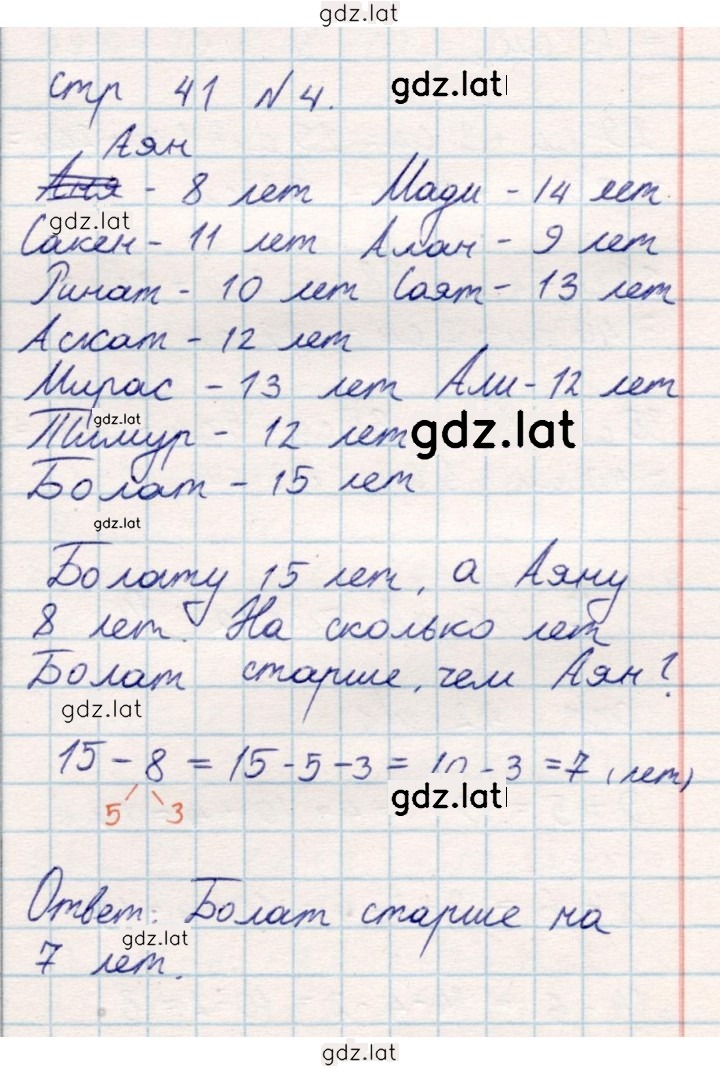 gdz.lat
стр 41 №4.
gdz.lat
Аян
Аня - 8 лет Мади - 14 лет.
gdz.lat
Сакен - 11 лет Алан - 9 лет
Ринат - 10 лет Саят - 13 лет
Аскат - 12 лет
Мирас - 13 лет Али - 12 лет
gdz.lat
Тимур - 12 лет
gdz.lat
Болат - 15 лет
gdz.lat
Болату 15 лет, а Аяну
8 лет. На сколько лет
Болат старше, чем Аян?
gdz.lat
15 - 8 = 15 - 5 - 3 = 10 - 3 = 7 (лет)
5 3
gdz.lat
Ответ: Болат старше на
gdz.lat
7 лет.
gdz.lat